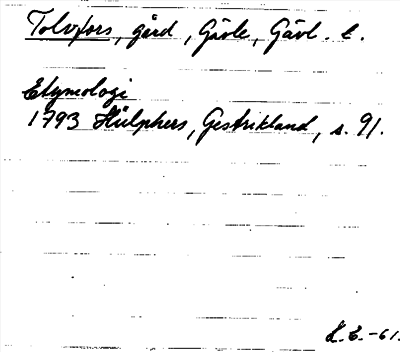 Tolvfors, gård, Gävle, Gävl. l.
Etymologi
1793 Hülphers, Gestrikland, s. 91.
K.E.-61.